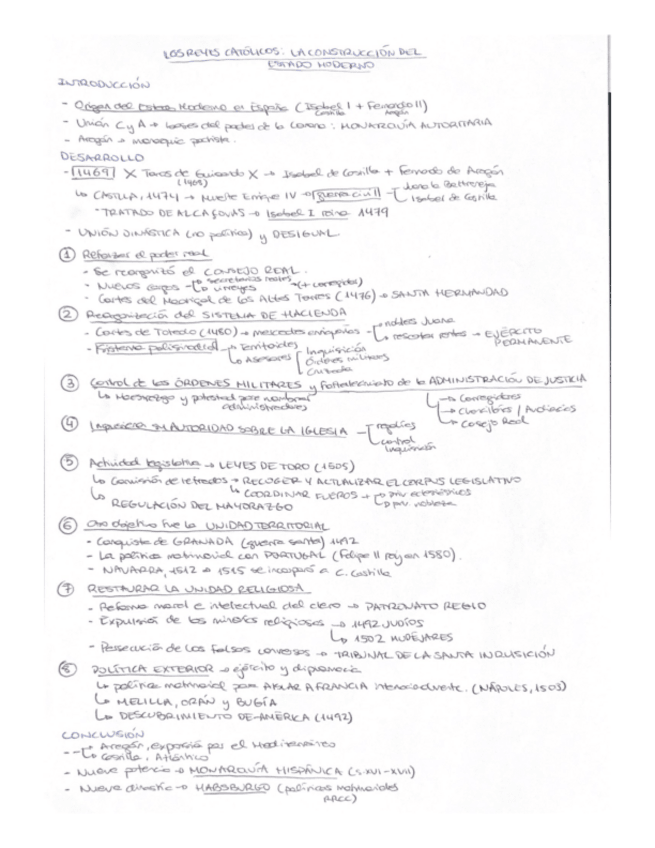 LOS REYES CATÓLICOS: LA CONSTRUCCIÓN DEL
ESTADO MODERNO
INTRODUCCIÓN
- Origen del Estado Moderno en España (Isabel I + Fernando II)
Castilla Aragón
- Unión C y A → bases del poder de la Corona: MONARQUÍA AUTORITARIA
- Aragón → monarquía pactista.
DESARROLLO
- 1469 X Toros de Guisando X → Isabel de Castilla + Fernando de Aragón
(1468)
↳ CASTILLA, 1474 → Muerte Enrique IV → guerra civil Juana la Beltraneja
Isabel de Castilla
- TRATADO DE ALCAÇOVAS → Isabel I reina 1479
- UNIÓN DINÁSTICA (no política) y DESIGUAL
① Reforzar el poder real
- Se reorganizó el CONSEJO REAL.
- Nuevos cargos → secretarios reales
→ virreyes (+ corregidores)
- Cortes del Madrigal de las Altas Torres (1476) → SANTA HERMANDAD
② Reorganización del SISTEMA DE HACIENDA
- Cortes de Toledo (1480) → mercedes enriqueñas → nobles Juana
→ rescatar rentas → EJÉRCITO
PERMANENTE
- Sistema polisinodial → Territoriales
→ Asesores Inquisición
Órdenes militares
Cruzada
③ Control de las ÓRDENES MILITARES y fortalecimiento de la ADMINISTRACIÓN DE JUSTICIA
↳ Maestrazgo y potestad para nombrar
administradores
→ Corregidores
→ Chancillerías / Audiencias
→ Consejo Real
④ Imponer su AUTORIDAD SOBRE LA IGLESIA → regalías
→ control
Inquisición
⑤ Actividad legislativa → LEYES DE TORO (1505)
↳ Comisión de letrados → RECOGER Y ACTUALIZAR EL CORPUS LEGISLATIVO
↳ COORDINAR FUEROS → priv eclesiásticos
→ priv nobleza
↳ REGULACIÓN DEL MAYORAZGO
⑥ Otro objetivo fue la UNIDAD TERRITORIAL
- Conquista de GRANADA (guerra santa) 1492
- La política matrimonial con PORTUGAL (Felipe II rey en 1580).
- NAVARRA, 1512 → 1515 se incorporó a C. Castilla
⑦ RESTAURAR LA UNIDAD RELIGIOSA
- Reforma moral e intelectual del clero → PATRONATO REGIO
- Expulsión de las minorías religiosas → 1492 JUDÍOS
↳ 1502 MUDÉJARES
- Persecución de los falsos conversos → TRIBUNAL DE LA SANTA INQUISICIÓN
⑧ POLÍTICA EXTERIOR → ejército y diplomacia
↳ política matrimonial para AISLAR A FRANCIA internacionalmente. (NÁPOLES, 1503)
↳ MELILLA, ORÁN y BUGÍA
↳ DESCUBRIMIENTO DE AMÉRICA (1492)
CONCLUSIÓN
-- → Aragón, expansión por el Mediterráneo
→ Castilla, Atlántico
- Nueva potencia → MONARQUÍA HISPÁNICA (S. XVI-XVII)
- Nueva dinastía → HABSBURGO (políticas matrimoniales
RRCC)